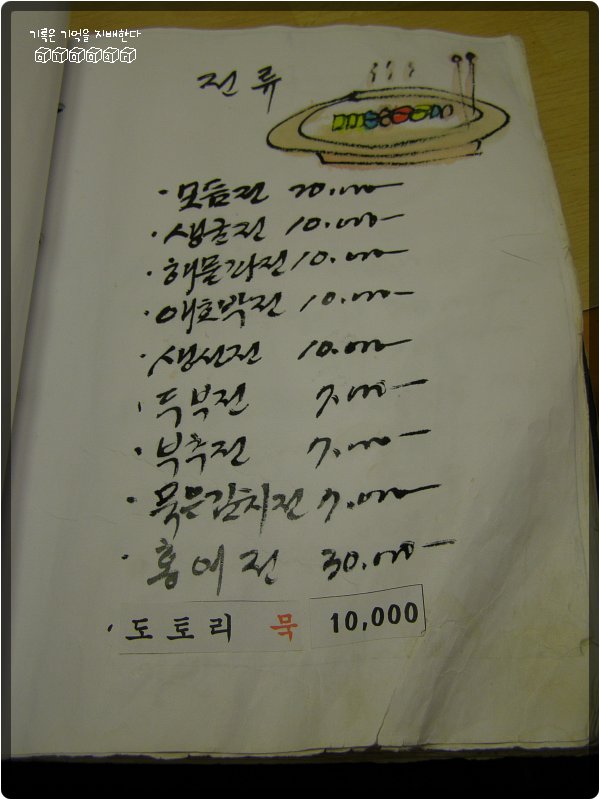 기록은 기억을 지배한다
전류
· 모듬전 20.000-
· 생굴전 10.000-
· 해물파전 10.000-
· 애호박전 10.000-
· 생선전 10.000
· 두부전 7.000-
· 부추전 7.000-
· 묵은김치전 7.000-
· 홍어전 30.000-
· 도토리 묵 10,000